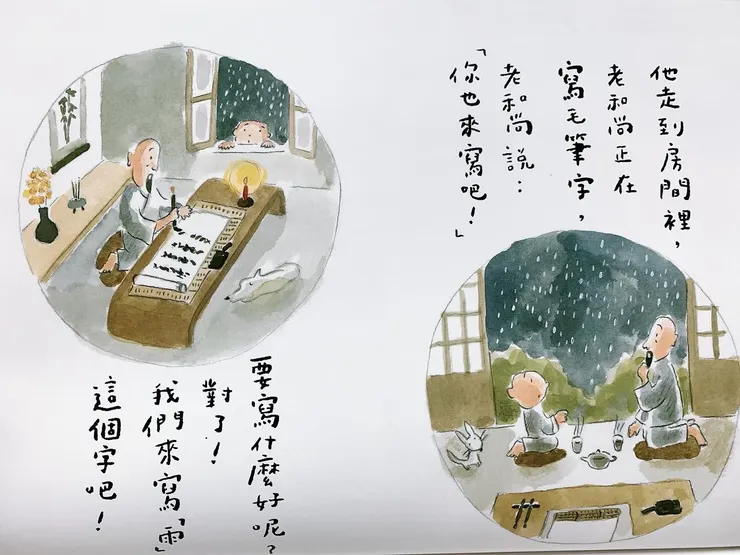 他走到房間裡，
老和尚正在
寫毛筆字，
老和尚說：
「你也來寫吧！」
要寫什麼好呢？
對了！
我們來寫「雨」
這個字吧！